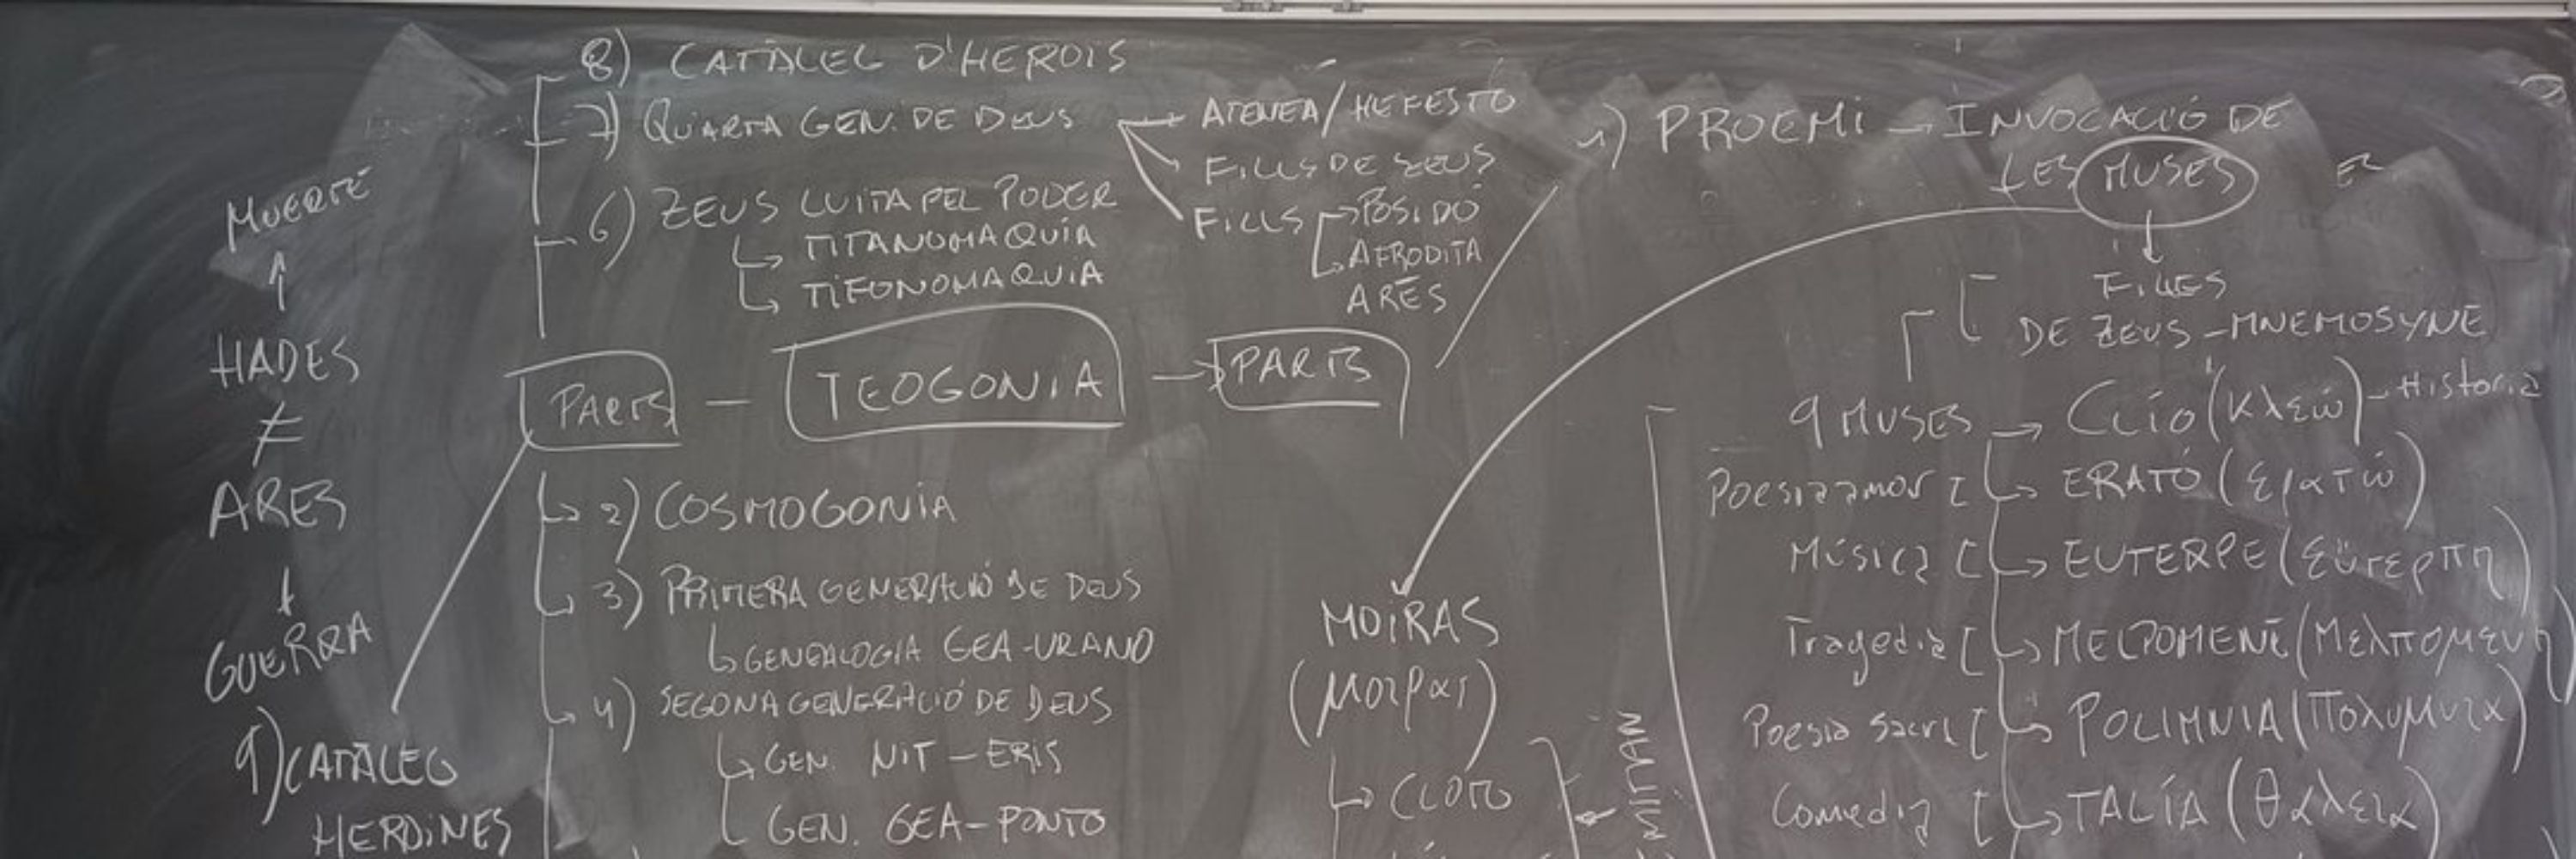 8) CATÀLEG D'HEROIS
7) QUARTA GEN. DE DEUS
ATENEA/HEFESTO
FILLS DE ZEUS
FILLS → POSIDÓ
AFRODITA
ARES
6) ZEUS LUITA PEL PODER
↳ TITANOMAQUIA
↳ TIFONOMAQUIA
MUERTE
↑
HADES
≠
ARES
↓
GUERRA
9) CATÀLEG
HEROÏNES
PARTS — TEOGONIA → PARTS
↳ 2) COSMOGONIA
↳ 3) PRIMERA GENERACIÓ DE DEUS
↳ GENEALOGIA GEA-URANO
↳ 4) SEGONA GENERACIÓ DE DEUS
↳ GEN. NIT - ERIS
GEN. GEA - PONTO
1) PROEMI → INVOCACIÓ DE
LES MUSES
↓
FILLES
DE ZEUS - MNEMOSYNE
9 MUSES → CLÍO (Κλειώ) - Historia
Poesia amor [ ↳ ERATÓ (Ερατώ)
Música [ ↳ EUTERPE (Εὐτερπη)
Tragedia [ ↳ MELPOMENE (Μελπομενη)
Poesia sacra [ ↳ POLIMNIA (Πολυμνια)
Comedia [ ↳ TALÍA (Θαλεια)
MOIRAS
(Μοιραι)
↳ CLOTO